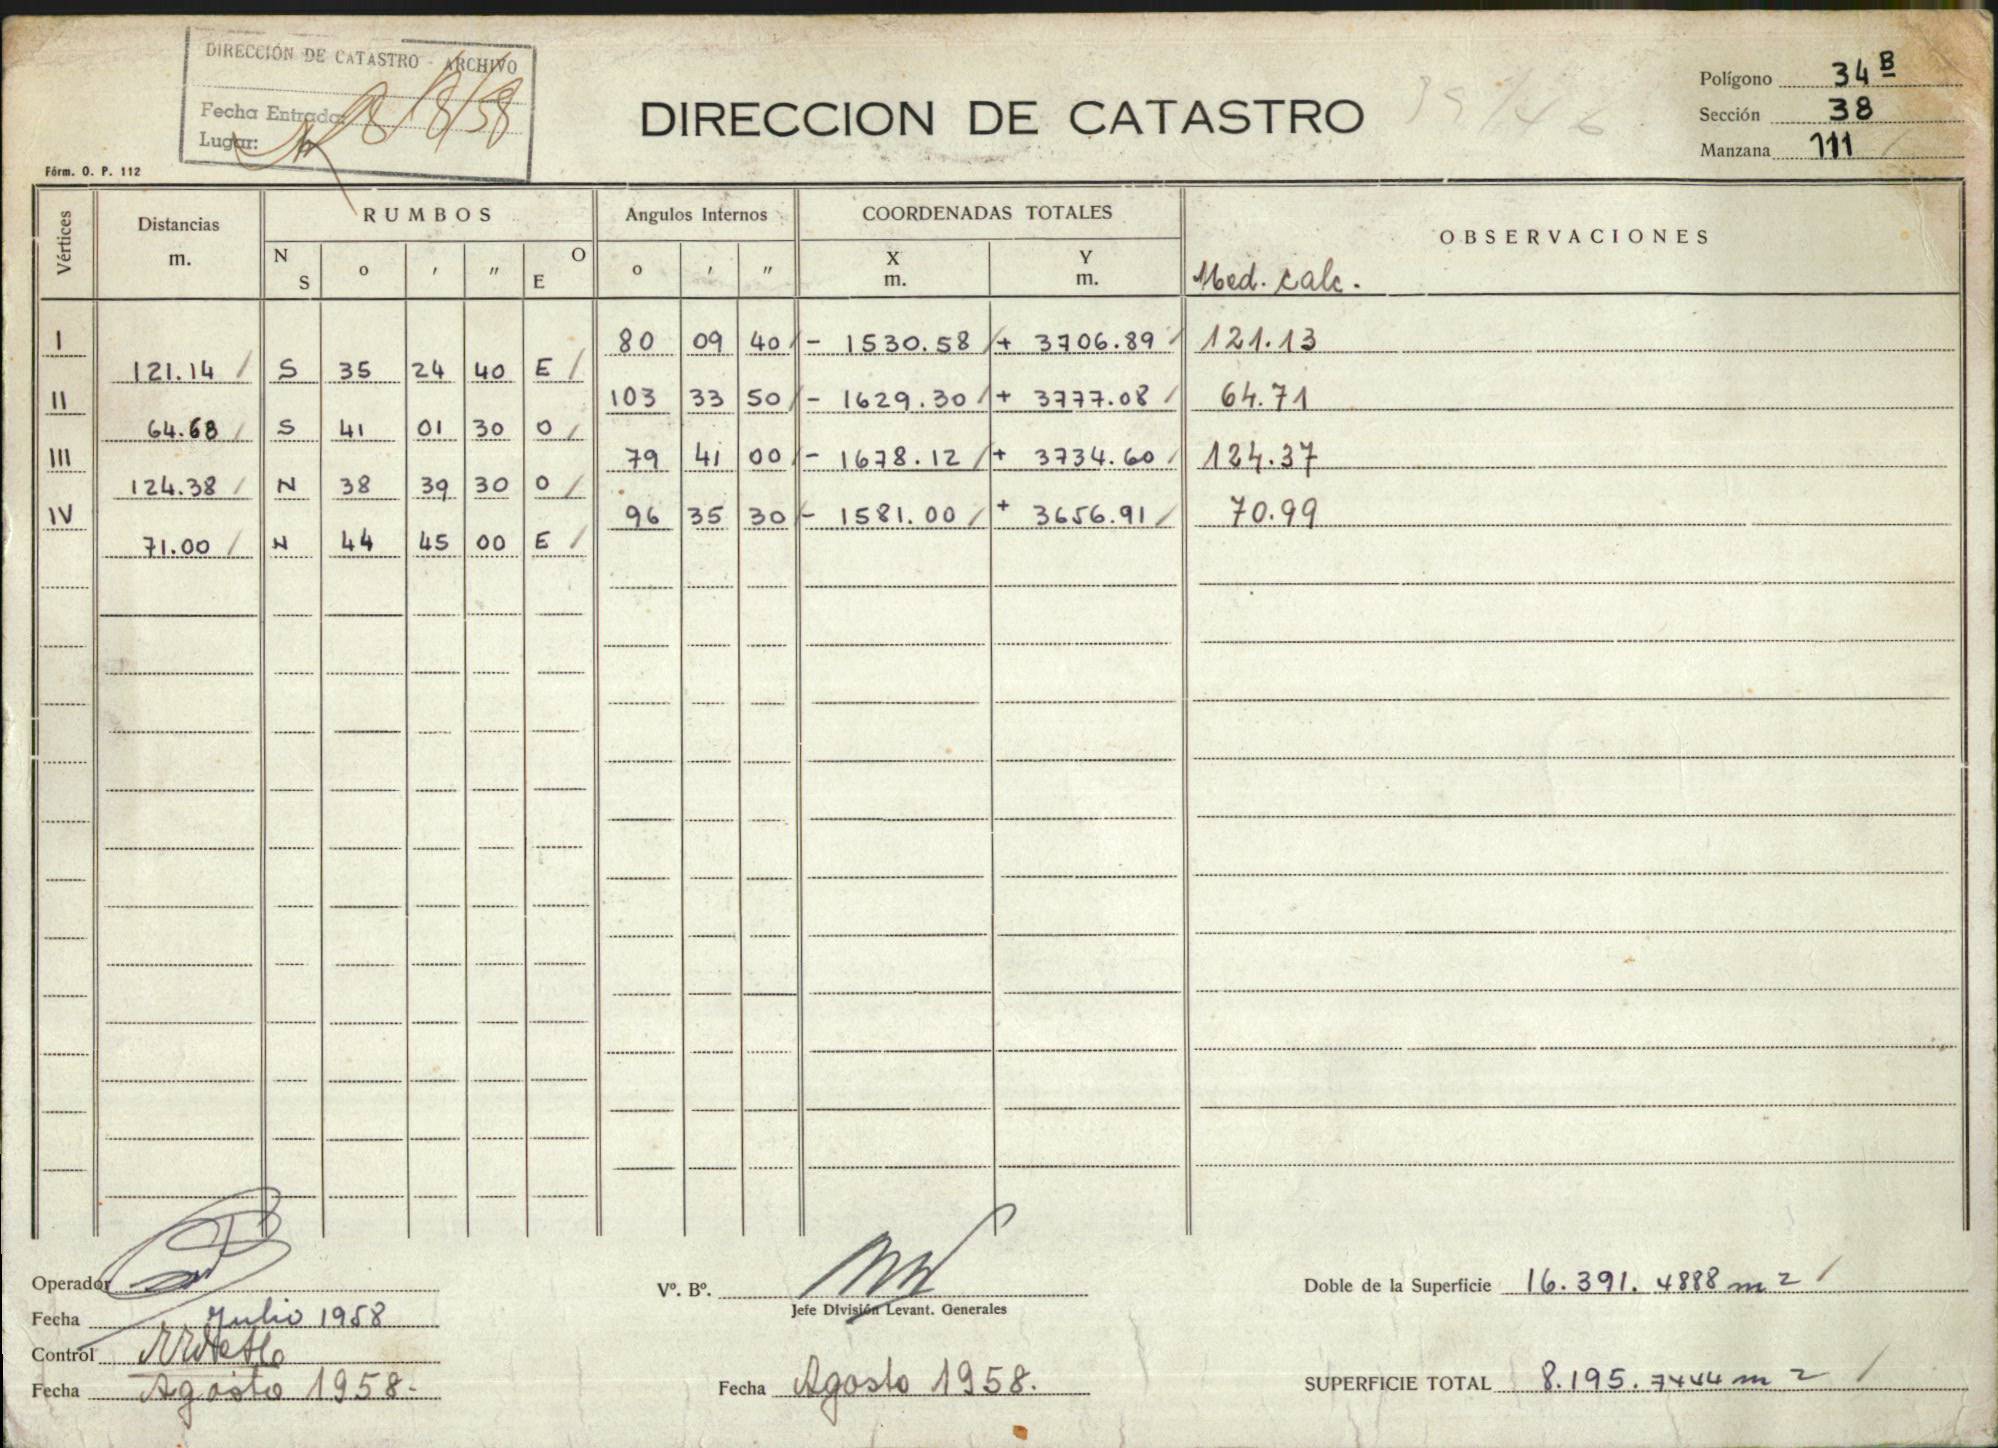 DIRECCIÓN DE CATASTRO - ARCHIVO
Fecha Entrada: 8/8/58
Lugar:
Fórm. O. P. 112
DIRECCION DE CATASTRO
Polígono 34 B
Sección 38
Manzana 111
Vértices Distancias m. RUMBOS Angulos Internos COORDENADAS TOTALES OBSERVACIONES
N S o ' " O E o ' " X m. Y m. Med. calc.
I 80 09 40 - 1530.58 + 3706.89 121.13
121.14 S 35 24 40 E
II 103 33 50 - 1629.30 + 3777.08 64.71
64.68 S 41 01 30 O
III 79 41 00 - 1678.12 + 3734.60 124.37
124.38 N 38 39 30 O
IV 96 35 30 - 1581.00 + 3656.91 70.99
71.00 N 44 45 00 E
Operador
Fecha Julio 1958
Control
Fecha Agosto 1958.-
Vº. Bº.
Jefe División Levant. Generales
Fecha Agosto 1958.
Doble de la Superficie 16.391.4888 m2
SUPERFICIE TOTAL 8.195.7444 m2